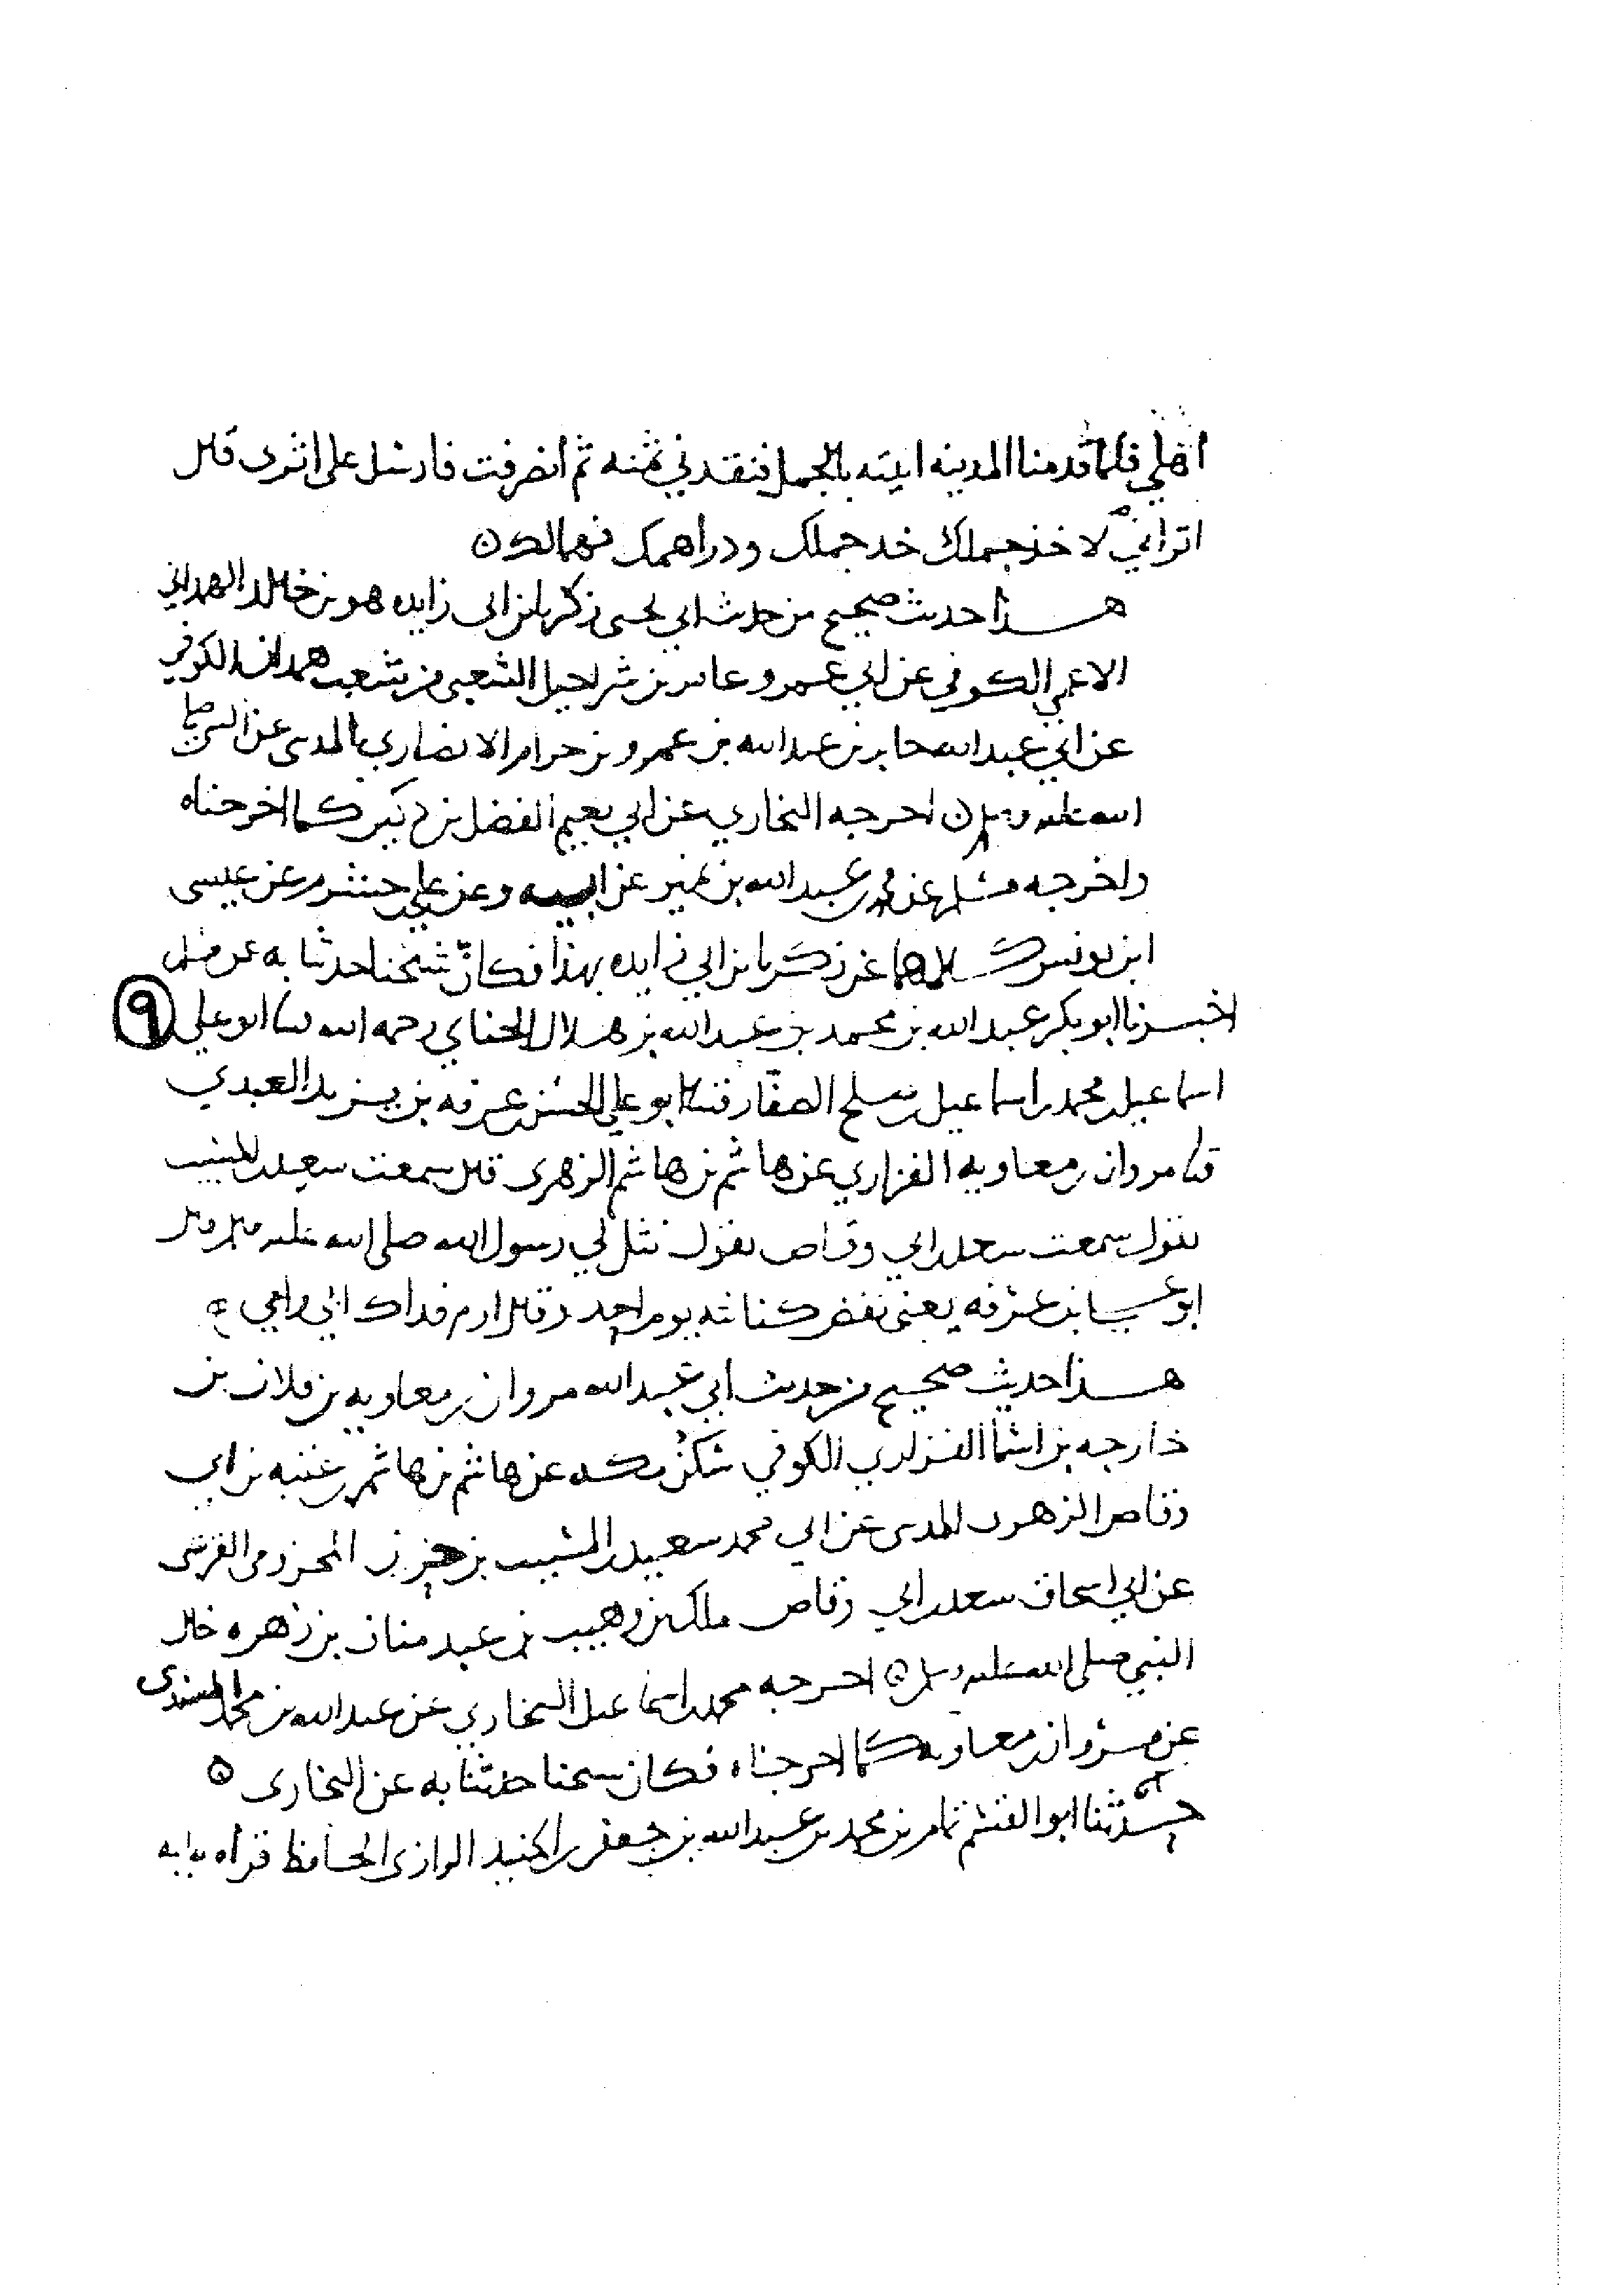 اهلي فلما قدمنا المدينه اتيته بالجمل فنقدني ثمنه ثم انصرفت فارسل على اثرى قال
اتراني لاخذ جملك خذ جملك ودراهمك فهما لك ن
هذا حديث صحيح من حديث ابي يحيى زكريا بن ابي زايده هو بن خالد الهمداني
الاعمى الكوفي عن ابي عمرو عامر بن شراحيل الشعبي من شعب همدان الكوفي
عن ابي عبدالله جابر بن عبدالله بن عمرو بن حرام الانصاري المدني عن النبي صلى
الله عليه وسلم ن اخرجه البخاري عن ابي نعيم الفضل بن دكين كما اخرجناه
واخرجه مسلم عن محمد بن عبدالله بن نمير عن ابيه وعن علي بن خشرم عن عيسى
ابن يونس كلاهما عن زكريا بن ابي زايده بهذا فكان شيخنا حدثنا به عن مسلم
اخبرنا ابو بكر عبدالله بن محمد بن عبدالله بن هلال الحناي رحمه الله ثنا ابو علي ٩
اسماعيل بن محمد بن اسماعيل بن صلح الصفار قثنا ابو علي الحسن بن عرفه بن يزيد العبدي
قثنا مروان بن معاويه الفزاري عن هاشم بن هاشم الزهرى قال سمعت سعيد بن المسيب
يقول سمعت سعد بن ابي وقاص يقول نثل لي رسول الله صلى الله عليه وسلم قال
ابو علي بن عرفه يعني نفض كنانته يوم احد وقال ارم فداك ابي وامي ه
هذا حديث صحيح من حديث ابي عبدالله مروان بن معاويه بن فلان بن
خارجه بن اسما الفزاري الكوفي سكن مكه عن هاشم بن هاشم بن عتبه بن ابي
وقاص الزهري المدني عن ابي محمد سعيد بن المسيب بن حزن المخزومي القرشي
عن ابي اسحاق سعد بن ابي وقاص ملك بن وهيب بن عبد مناف بن زهره خال
النبي صلى الله عليه وسلم ه اخرجه محمد بن اسماعيل البخاري عن عبدالله بن محمد المسندى
عن مروان بن معاويه كما اخرجناه فكان شيخنا حدثنا به عن البخارى ه
حدثنا ابو القسم تمام بن محمد بن عبدالله بن جعفر بن الجنيد الرازى الحافظ قراه